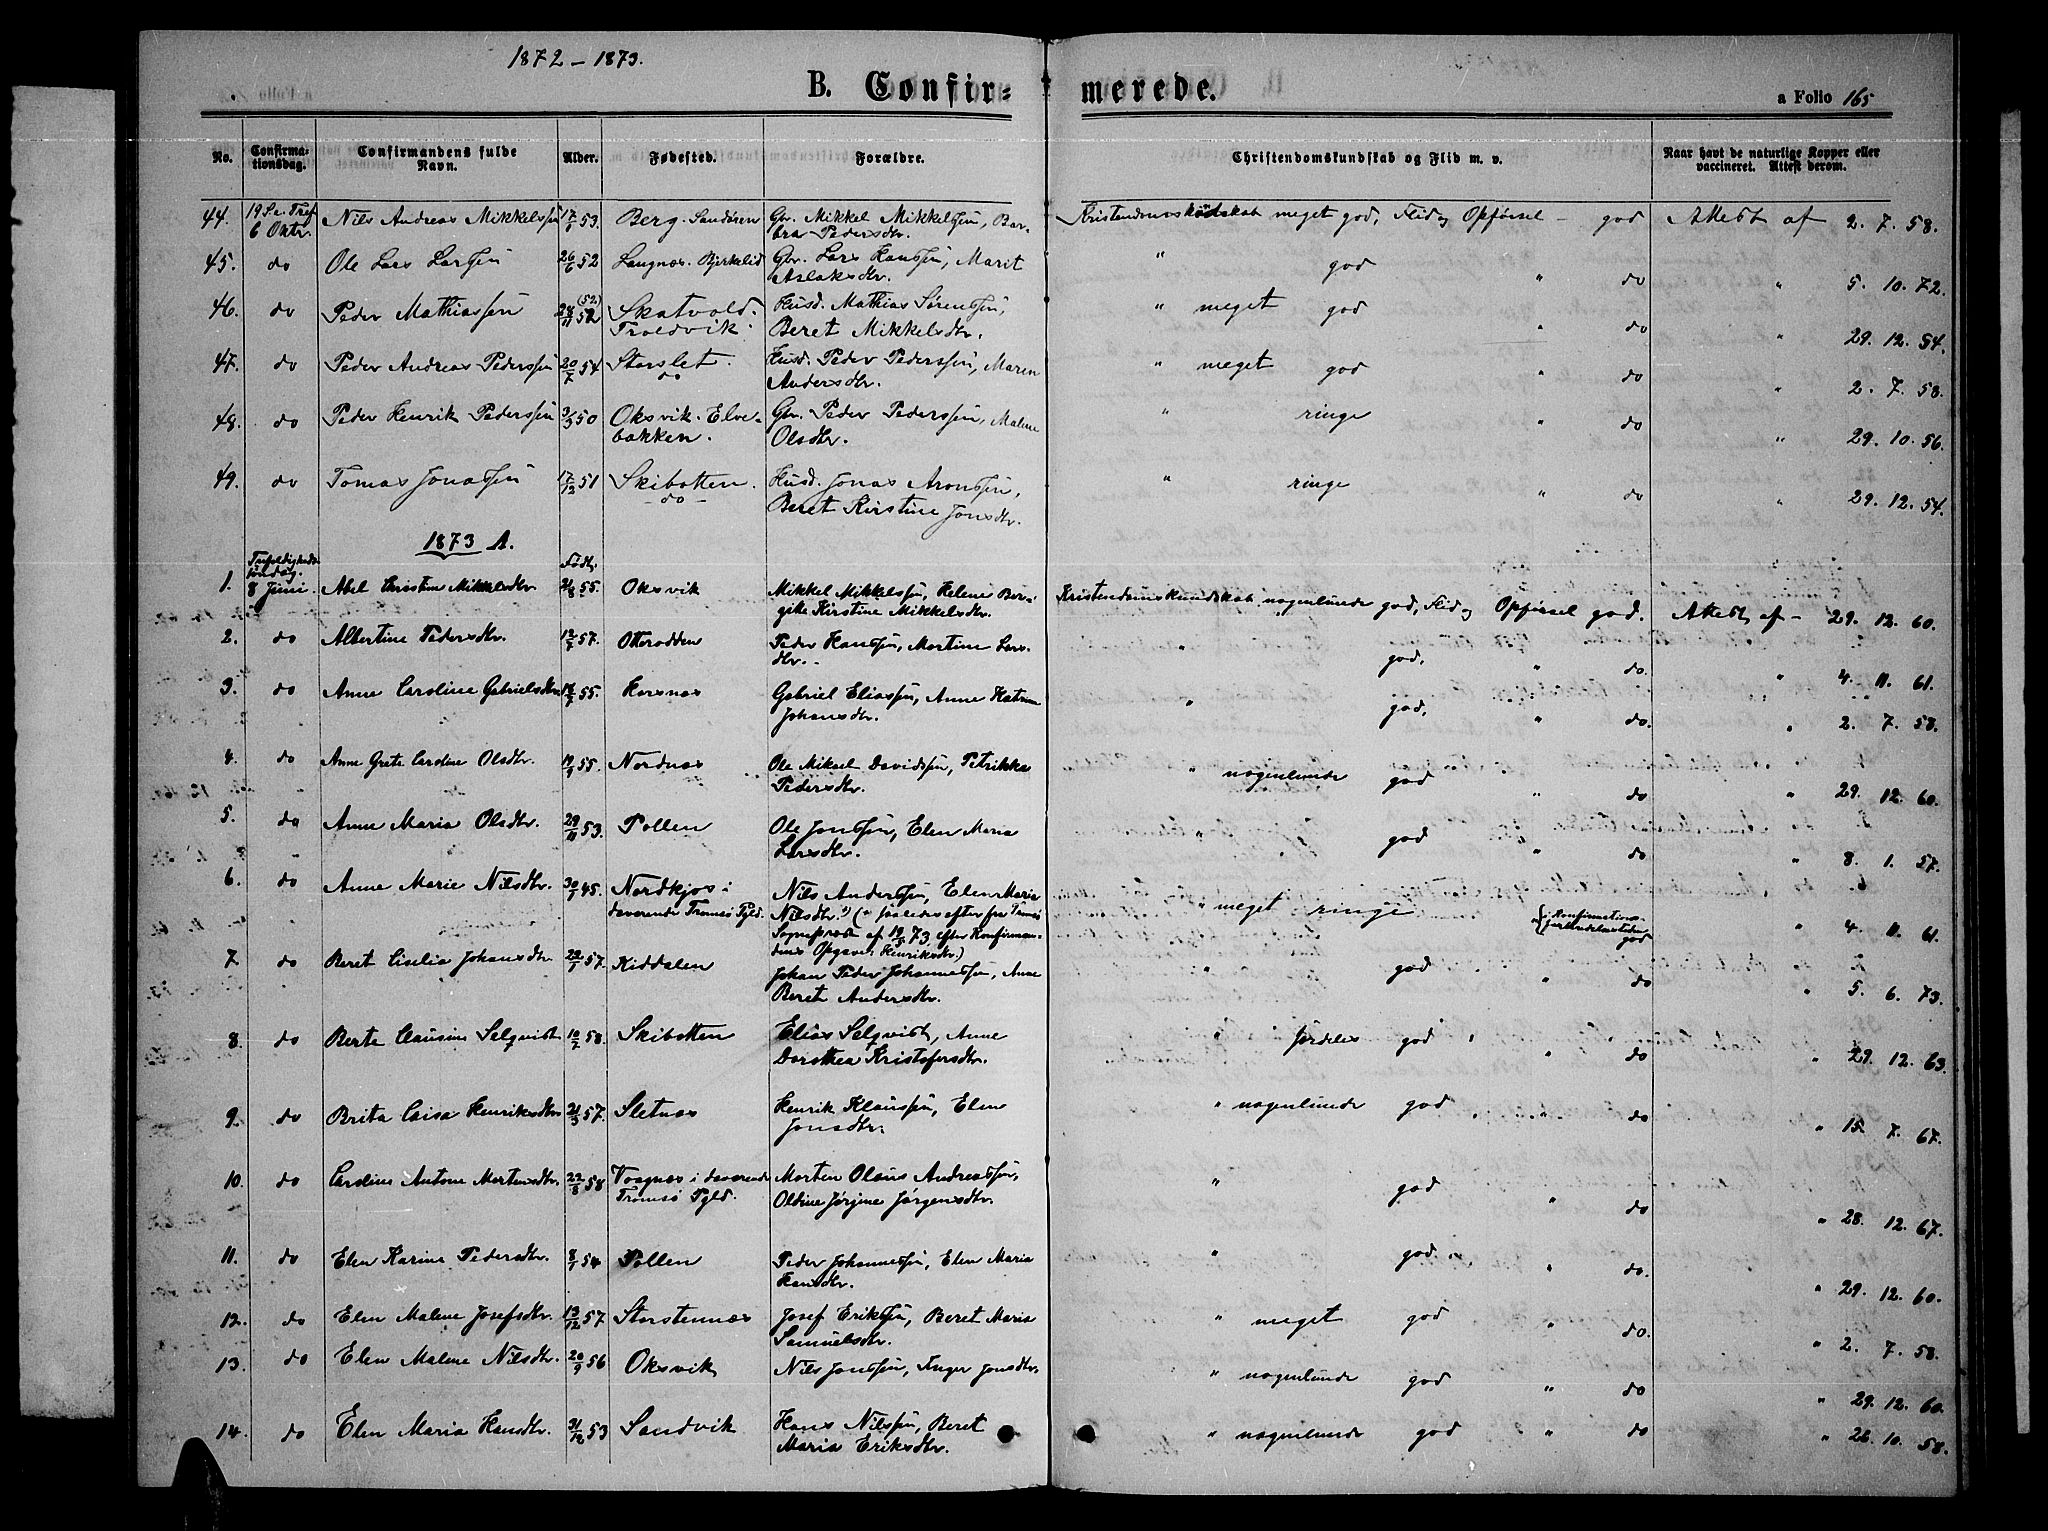 1872 – 1873.
B. Confir= merede.
a Folio 165
No. Confirma-tionsdag. Confirmandens fulde Navn. Alder. Fødested. Forældre. Christendomskundskab og Flid m. v. Naar havt de naturlige Kopper eller vaccineret. Attest derom.
44. 19 S. e. Tref. 6 Oktr. Nils Andreas Mikkelssøn 17/1 53. Berg. Sandøren Gbr. Mikkel Mikkelssøn, Bar- Kristendomskundskab meget god, Flid og Opførsel – god Attest af 2. 7. 58.
bra Pedersdtr.
45. do Ole Lars Larssøn 26/6 52 Langnæs. Bjrkelid Gbr. Lars Hanssøn, Marit " god " do " 5. 10. 72.
Aslaksdtr.
46. do Peder Mathiassøn 28/11 52 (52) Skatvold. Husd. Mathias Sørenssøn, " meget god " do " 29. 12. 54.
Troldvik. Beret Mikkelsdtr.
47. do Peder Andreas Pederssøn 20/7 54 Storslet. Husd. Peder Pederssøn, Maren " meget god " do " 2. 7. 58.
do Andersdtr.
48. do Peder Henrik Pederssøn 3/3 50 Oksvik. Elve- Gbr. Peder Pederssøn, Malene " ringe " do " 29. 10. 56.
bakken. Olsdtr.
49. do Tomas Jonassøn 17/12 51 Skibotten. Husd. Jonas Aronssøn, " ringe " do " 29. 12. 54.
– do – Beret Kirstine Jonsdtr.
1873 A.
Trefoldigheds Født.
søndag.
1. 8 Juni. Abel Christine Mikkelsdtr 21/8 55. Oksvik Mikkel Mikkelssøn, Helene Ber- Kristendomskundskab nogenlunde god, Flid og Opførsel god. Attest af – 29. 12. 60.
gitte Kirstine Mikkelsdtr.
2. do Albertine Pedersdtr. 12/7 57. Otterodden Peder Hanssøn, Martine Lars- " god, " do. " 4. 11. 61.
dtr.
3. do Anne Caroline Gabrielsdtr 55. Horsnæs Gabriel Eliassøn, Anne Katrine " god, " do. " 2. 7. 58.
Johansdtr.
4. do Anne Grete Caroline Olsdtr. 19/9 55. Nordnæs Ole Mikael Davidssøn, Petrikka " nogenlunde god " do " 29. 12. 60.
Pedersdtr.
5. do Anne Maria Olsdtr. 29/11 53. Pollen Ole Jonssøn, Elen Maria " god " do " 8. 1. 57.
Larsdtr.
6. do Anne Marie Nilsdtr. 30/7 45. Nordkjos i Nils Anderssøn, Elen Maria " meget ringe " i Konfirmations- " 4. 11. 61.
daværende Tromsø Pgld. Nilsdtr. ¹) (¹ saaledes efter fra Tromsø forberedelsestiden god
Sogneprest af 19/5 73, efter Konfirman-
dens Opgave: Henriksdtr.)
7. do Beret Cicelia Johansdtr 22/1 57. Kiddalen Johan Peder Johannessøn, Anne " god " do " 5. 6. 73.
Beret Andersdtr.
8. do Berte Clausine Selqvist 10/7 58. Skibotten Elias Selqvist, Anne " særdeles god " do " 29. 12. 63.
Dorothea Kristofersdtr.
9. do Brita Caisa Henriksdtr 21/3 57. Sletnæs Henrik Klaussøn, Elen " nogenlunde god " do " 15. 7. 67.
Jonsdtr.
10. do Caroline Antone Mortensdtr. 22/8 58 Vaagnæs i daværende Morten Olaus Andreassøn, " god " do " 28. 12. 67.
Tromsø Pgld. Oldine Jørgine Jørgensdtr.
11. do Elen Karine Pedersdtr. 8/1 54 Pollen Peder Johannessøn, Elen Maria " god. " do. " 29. 12. 60.
Hansdtr.
12. do Elen Malene Josefsdtr. 13/12 57 Storstennæs Josef Erikssøn, Beret Maria " meget god " do. " 2. 7. 58.
Samuelsdtr.
13. do Elen Malene Nilsdtr. 20/9 56 Oksvik Nils Jonssøn, Inger Jonsdtr. " nogenlunde god " do " 29. 12. 60.
14. do Elen Maria Hansdtr. 21/12 53 Sandvik Hans Nilssøn, Beret " nogenlunde god " do " 26. 10. 58.
Maria Eriksdtr.